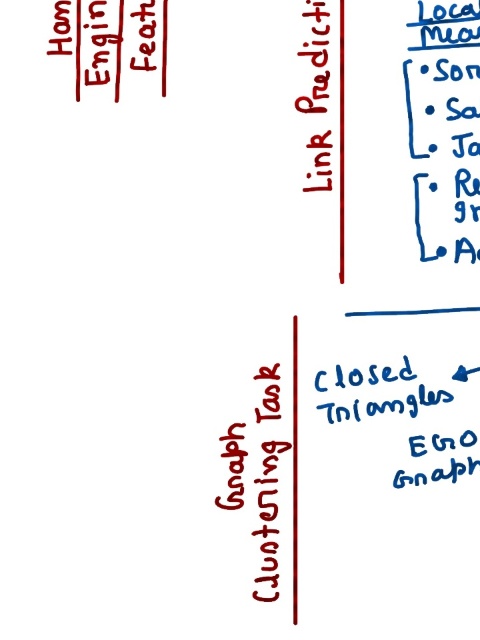 Han
Engin
Feat
Link Predicti
Loca
Mea
• Sor
• Sa
• Ja
• Re
gr
• A
Graph
Clustering Task
Closed
Triangles
EGO
Graph